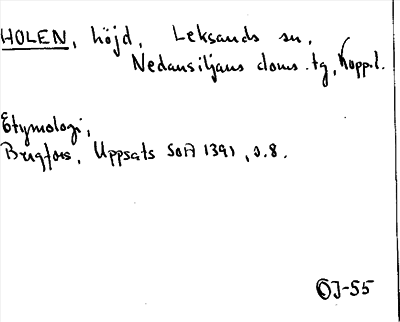 HOLEN, höjd, Leksands sn,
Nedansiljans doms. tg, Kopp.l.
Etymologi,
Bergfors, Uppsats SOA 1391, s.8.
ÖJ-55